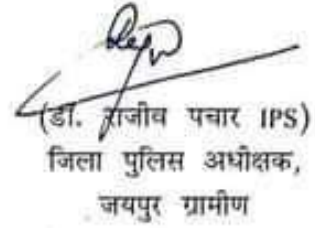 (डॉ. राजीव पचार IPS)
जिला पुलिस अधीक्षक,
जयपुर ग्रामीण